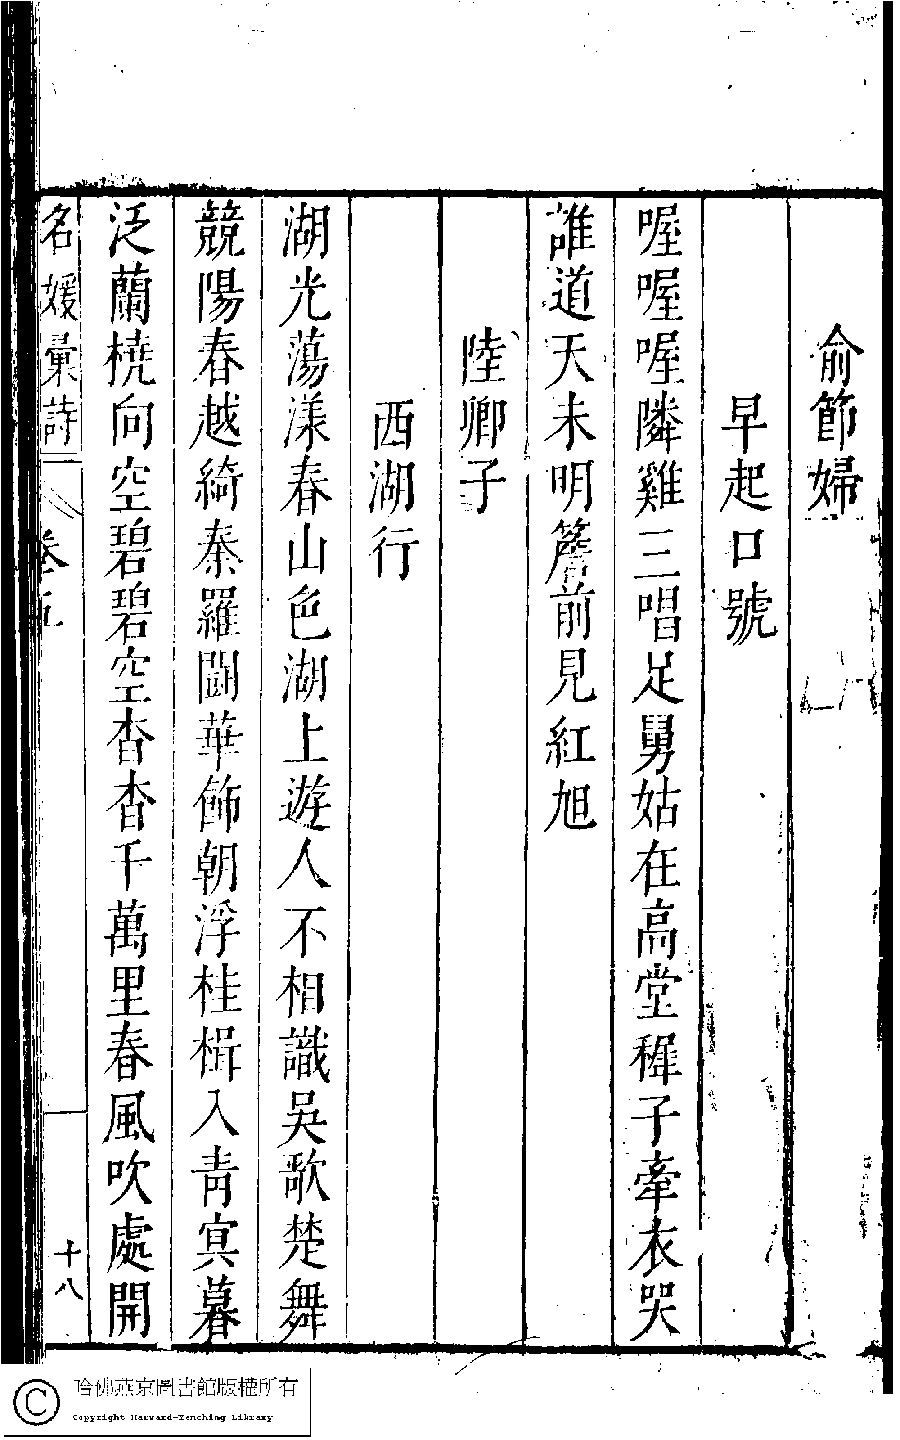 俞節婦
早起口號
喔喔喔隣雞三唱足舅姑在高堂穉子牽衣哭
誰道天未明簷前見紅旭
陸卿子
西湖行
湖光蕩漾春山色湖上遊人不相識吳歌楚舞
競陽春越綺秦羅鬪華飾朝浮桂楫入青冥暮
泛蘭橈向空碧碧空杳杳千萬里春風吹處開
名媛彙詩 卷五 十八
哈佛燕京圖書館版權所有
Copyright Harvard-Yenching Library